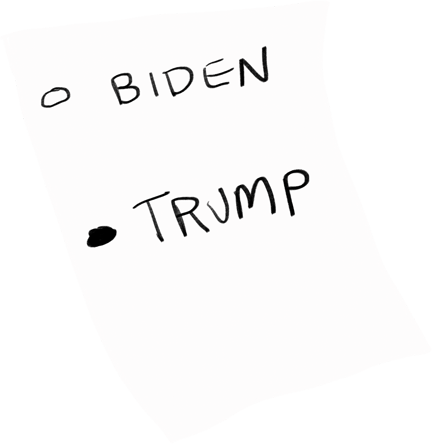 BIDEN
TRUMP